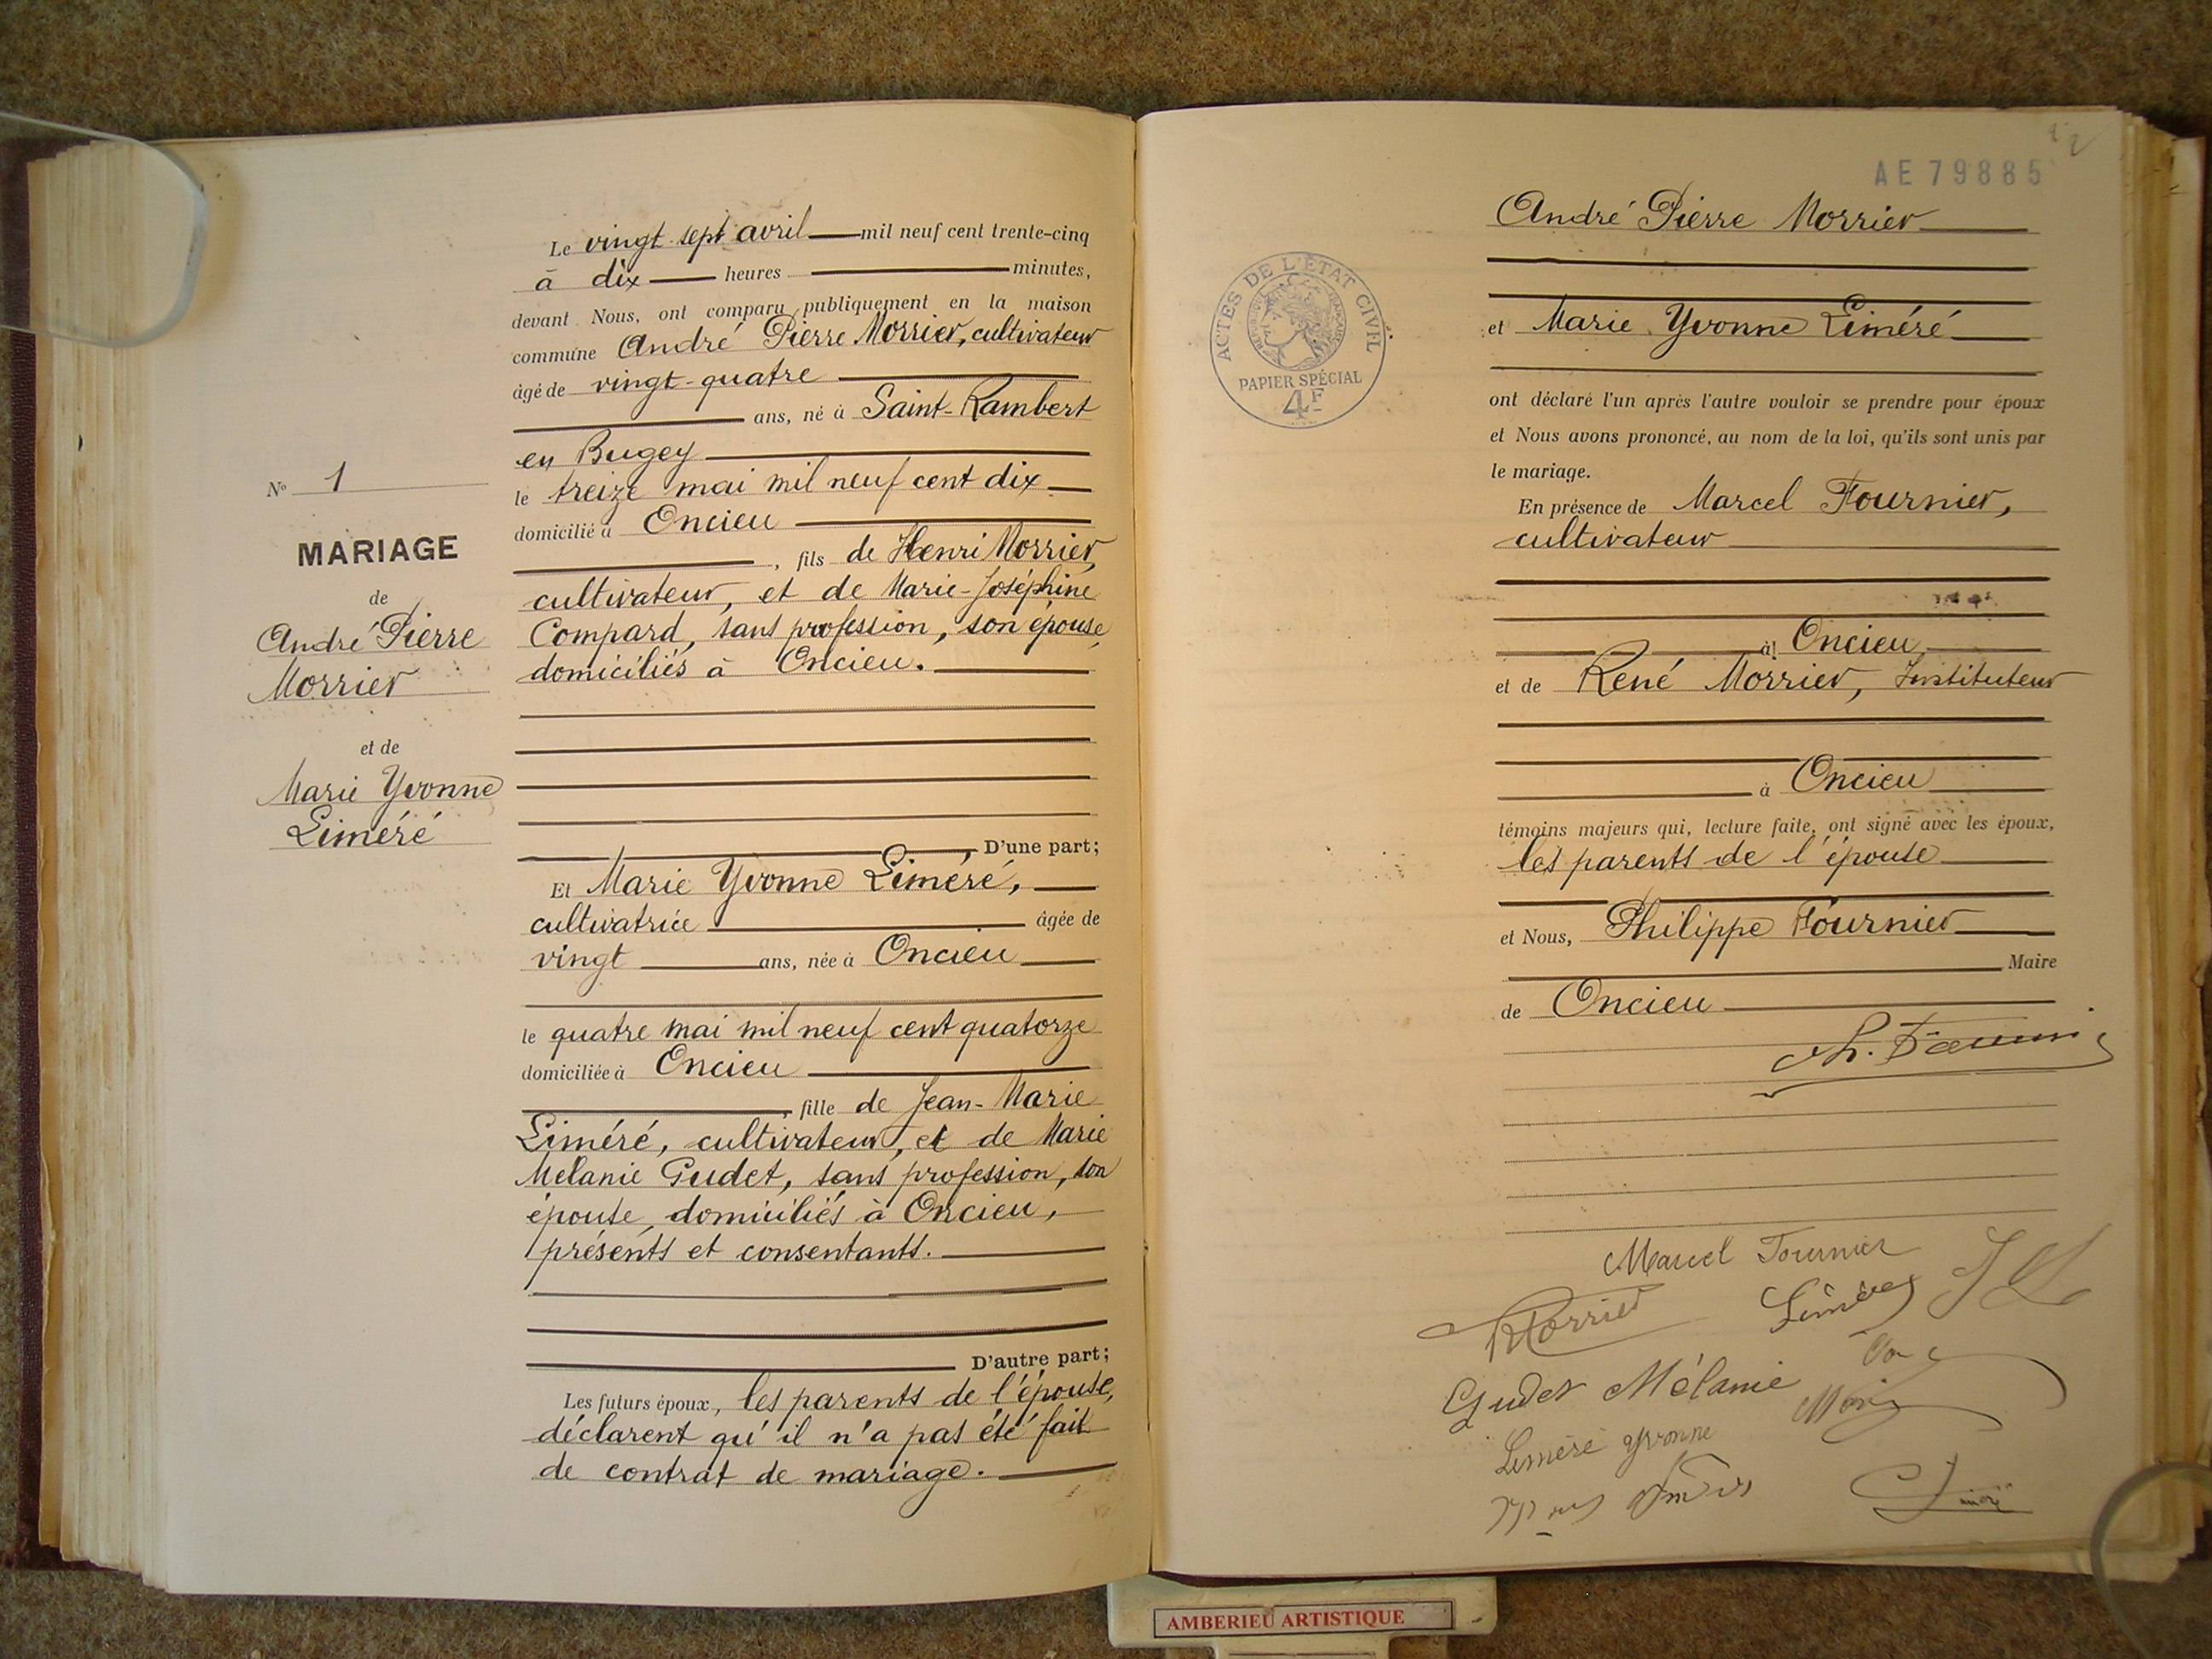 Le vingt sept avril mil neuf cent trente-cinq
à dix heures minutes,
devant Nous, ont comparu publiquement en la maison
commune André Pierre Morrier, cultivateur
âgé de vingt-quatre
ans, né à Saint-Rambert
en Bugey
le treize mai mil neuf cent dix
domicilié à Oncieu
, fils de Henri Morrier,
cultivateur, et de Marie-Joséphine
Compard, sans profession, son épouse,
domiciliés à Oncieu.
D'une part;
Et Marie Yvonne Liméré,
cultivatrice âgée de
vingt ans, née à Oncieu
le quatre mai mil neuf cent quatorze
domiciliée à Oncieu
, fille de Jean-Marie
Liméré, cultivateur, et de Marie
Melanie Gudet, sans profession, son
épouse, domiciliés à Oncieu,
présents et consentants.
D'autre part;
Les futurs époux, les parents de l'épouse,
déclarent qu'il n'a pas été fait
de contrat de mariage.
N° 1
MARIAGE
de
André Pierre
Morrier
et de
Marie Yvonne
Liméré
AE 79885
André Pierre Morrier
et Marie Yvonne Liméré
ont déclaré l'un après l'autre vouloir se prendre pour époux
et Nous avons prononcé, au nom de la loi, qu'ils sont unis par
le mariage.
En présence de Marcel Fournier,
cultivateur
à Oncieu
et de René Morrier, Instituteur
à Oncieu
témoins majeurs qui, lecture faite, ont signé avec les époux,
les parents de l'épouse
et Nous, Philippe Fournier
Maire
de Oncieu
ACTES DE L'ÉTAT CIVIL
PAPIER SPÉCIAL
4F
Marcel Fournier
RMorrier
Gudet Mélanie
Liméré Yvonne
AMBERIEU ARTISTIQUE